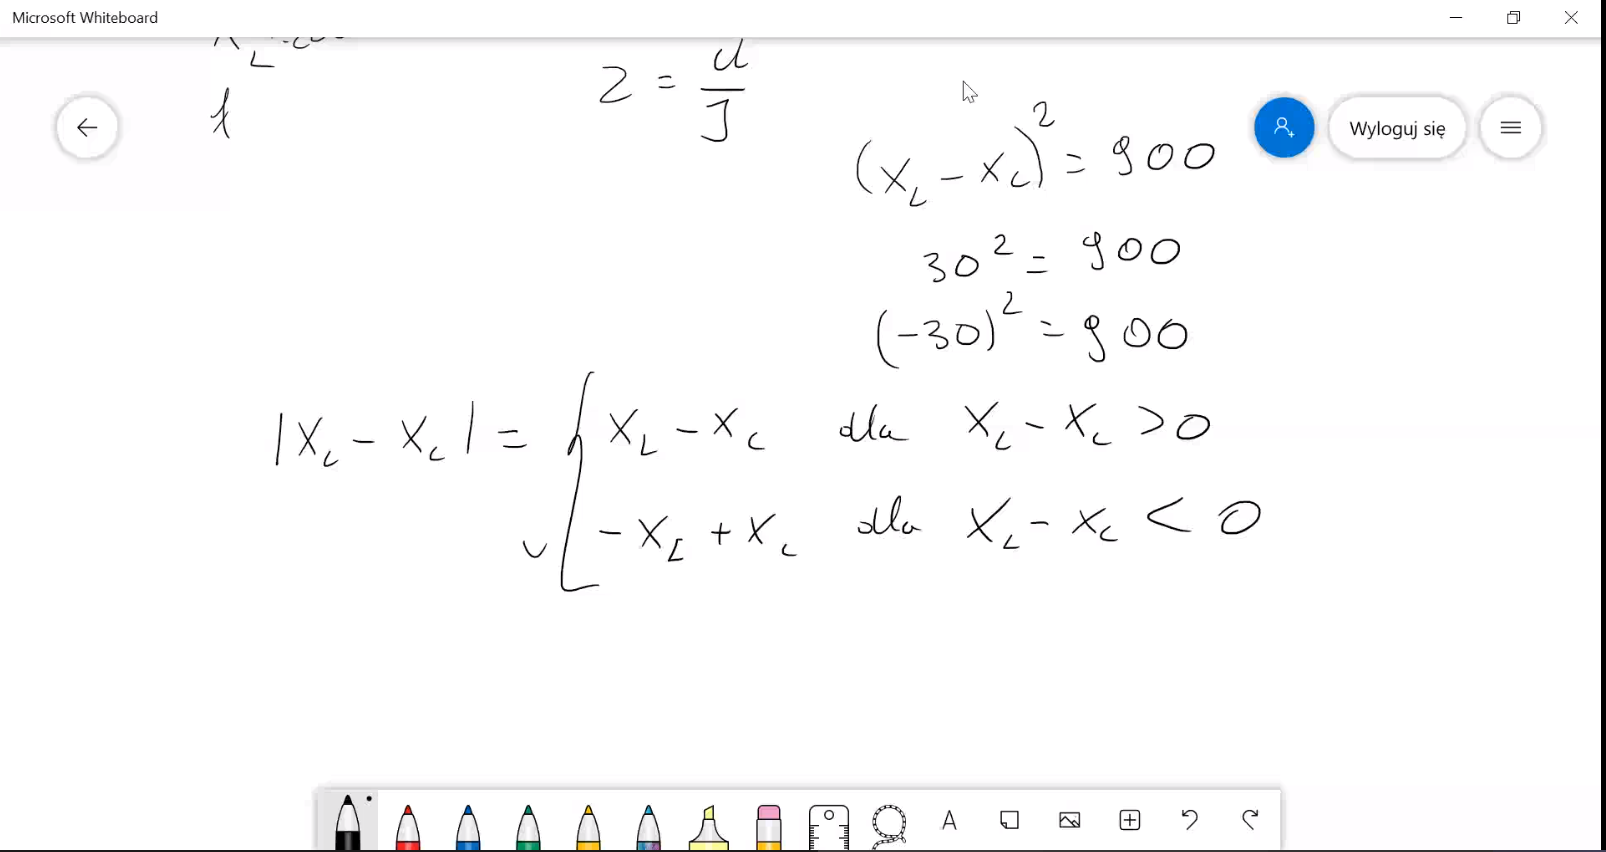 Microsoft Whiteboard
Z = U / I
Wyloguj się
(X_L - X_C)^2 = 900
30^2 = 900
(-30)^2 = 900
|X_L - X_C| = { X_L - X_C dla X_L - X_C > 0
- X_L + X_C dla X_L - X_C < 0
A